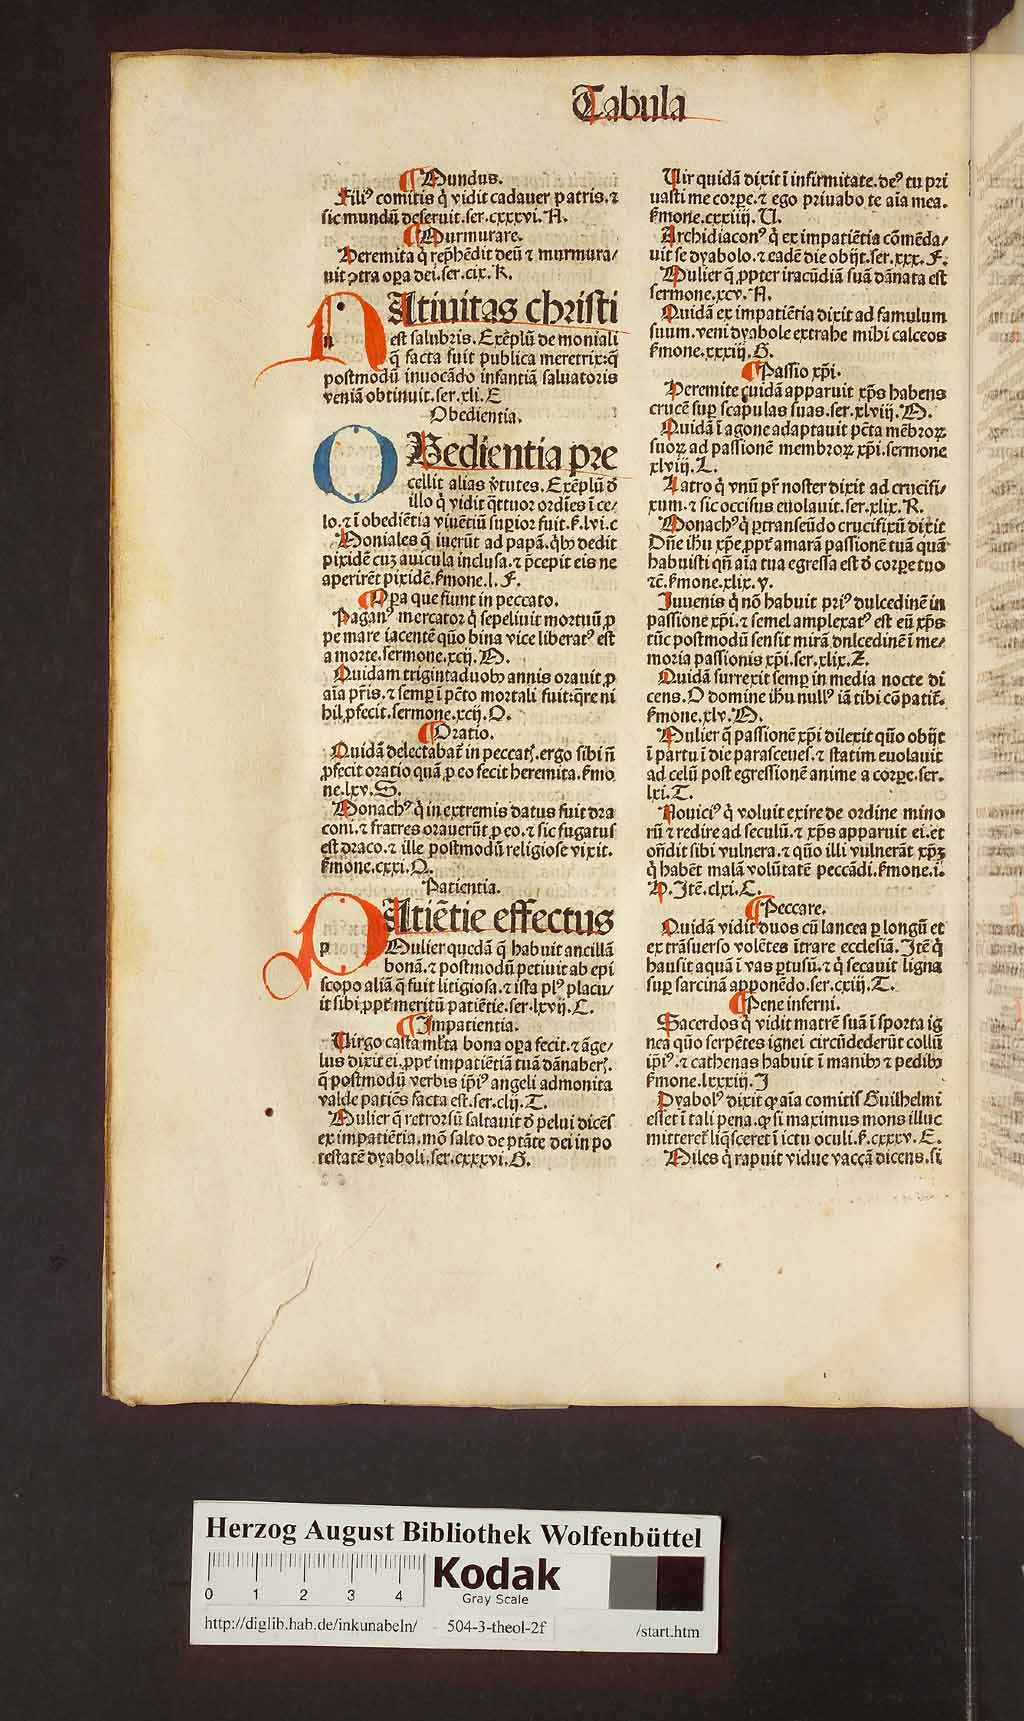 Tabula
¶ Mundus.
Filiꝰ comitis q̇ vidit cadauer patris.⁊
sic mundū deseruit.ser.cxxxvi.A.
¶ Murmurare.
Heremita q̇ rep̄hēdit deū ⁊ murmura/
uit ꝯtra oꝑa dei.ser.cix.K.
NAtiuitas christi
est salubris. Exēplū de moniali
q̄ facta fuit publica meretrix:q̄
postmodū inuocādo infantiā saluatoris
veniā obtinuit.ser.xli.E
Obedientia.
OBedientia pre
cellit alias v̄tutes. Exēplū ō
illo q̇ vidit q̄ttuor ordīes ī ce/
lo.⁊ ī obediētia viuētiū suꝑior fuit.ẜ.lvi.c
Moniales q̄ iuerūt ad papā.q̇bꝰ dedit
pixidē cuꝫ auicula inclusa.⁊ p̄cepit eis ne
aperirēt pixidē.ẜmone.l.F.
¶ Oꝑa que fiunt in peccato.
Paganꝰ mercator q̇ sepeliuit mortuū ꝓ
pe mare iacentē quō bina vice liberatꝰ est
a morte.sermone.xcij.M.
Quidam trigintaduobꝰ annis orauit ꝓ
aīa pr̄is.⁊ semꝑ ī pctō mortali fuit:q̄re ni
hil ꝓfecit.sermone.xcij.O.
¶ Oratio.
Quidā delectabat̄ in peccatꝭ.ergo sibi n̄
ꝓfecit oratio quā ꝓ eo fecit heremita.ẜmo
ne.lxv.S.
Monachꝰ q̇ in extremis datus fuit dra
coni.⁊ fratres orauerūt ꝓ eo.⁊ sic fugatus
est draco.⁊ ille postmodū religiose vixit.
ẜmone.cxxi.O.
Patientia.
PAtiētie effectus
Mulier quedā q̄ habuit ancillā
bonā.⁊ postmodū petiuit ab epi
scopo aliā q̄ fuit litigiosa.⁊ ista plꝰ placu/
it sibi ꝓpt̄ meritū patiētie.ser.lxvij.C.
¶ Impatientia.
Uirgo casta ml̄ta bona oꝑa fecit.⁊ āge/
lus dixit ei.ꝓpt̄ impatiētiā tuā dānaberꝭ.
q̄ postmodū verbis ip̄iꝰ angeli admonita
valde patiēs facta est.ser.clij.T.
Mulier q̄ retrorsū saltauit ō pelui dicēs
ex impatiētia.mō salto de ptāte dei in po
testatē dyaboli.ser.cxxxvi.G.
Uir quidā dixit ī infirmitate.deꝰ tu pri
uasti me corꝑe.⁊ ego priuabo te aīa mea.
ẜmone.cxxiiij.U.
Archidiaconꝰ q̇ ex impatiētia cōmēda/
uit se dyabolo.⁊ eadē die obijt.ser.xxx.F.
Mulier q̄ ꝓpter iracūdiā suā dānata est
sermone.xcv.A.
Quidā ex impatiētia dixit ad famulum
suum.veni dyabole extrahe mihi calceos
ẜmone.xxxiij.G.
¶ Passio xp̄i.
Heremite cuidā apparuit xp̄s habens
crucē suꝑ scapulas suas.ser.xlviij.M.
Quidā ī agone adaptauit pctā mēbroꝝ
suoꝝ ad passionē membroꝝ xp̄i.sermone
xlviij.L.
Latro q̇ vnū pr̄ noster dixit ad crucifi/
xum.⁊ sic occisus euolauit.ser.xlix.R.
Monachꝰ q̇ ꝑtranseūdo crucifixū dixit
Dn̄e ihū xp̄e ꝓpt̄ amarā passionē tuā quā
habuisti qn̄ aīa tua egressa est ō corꝑe tuo
⁊c̄.ẜmone.xlix.v.
Iuuenis q̇ nō habuit priꝰ dulcedinē in
passione xp̄i.⁊ semel amplexatꝰ est eū xp̄s
tūc postmodū sensit mirā dulcedinē ī me/
moria passionis xp̄i.ser.xlix.Z.
Quidā surrexit semꝑ in media nocte di
cens. O domine ihū nullꝰ iā tibi cōpatit̄.
ẜmone.xlv.M.
Mulier q̄ passionē xp̄i dilexit quō obijt
ī partu ī die parasceues.⁊ statim euolauit
ad celū post egressionē anime a corꝑe.ser.
lxi.T.
Nouiciꝰ q̇ voluit exire de ordine mino
rū ⁊ redire ad seculū.⁊ xp̄s apparuit ei.et
on̄dit sibi vulnera.⁊ quō illi vulnerāt xp̄ꝫ
q̇ habēt malā volūtatē peccādi.ẜmone.i.
P. Itē.clxi.C.
¶ Peccare.
Quidā vidit duos cū lancea ꝑ longū et
ex trāsuerso volētes ītrare ecclesiā. Itē q̇
hausit aquā ī vas ꝑtusū.⁊ q̇ secauit ligna
suꝑ sarcinā apponēdo.ser.cxiij.T.
¶ Pene inferni.
Sacerdos q̇ vidit matrē suā ī sporta ig
nea quō serpētes ignei circūdederūt collū
ip̄iꝰ.⁊ cathenas habuit ī manibꝰ ⁊ pedibꝰ
ẜmone.lxxxiij.I
Dyabolꝰ dixit ꝙ aīa comitis Guilhelmi
esset ī tali pena.ꝙ si maximus mons illuc
mitteret̄ liq̄sceret ī ictu oculi.ẜ.cxxxv.E.
Miles q̇ rapuit vidue vaccā dicens.si
Herzog August Bibliothek Wolfenbüttel
0 1 2 3 4
Kodak
Gray Scale
http://diglib.hab.de/inkunabeln/ - 504-3-theol-2f /start.htm